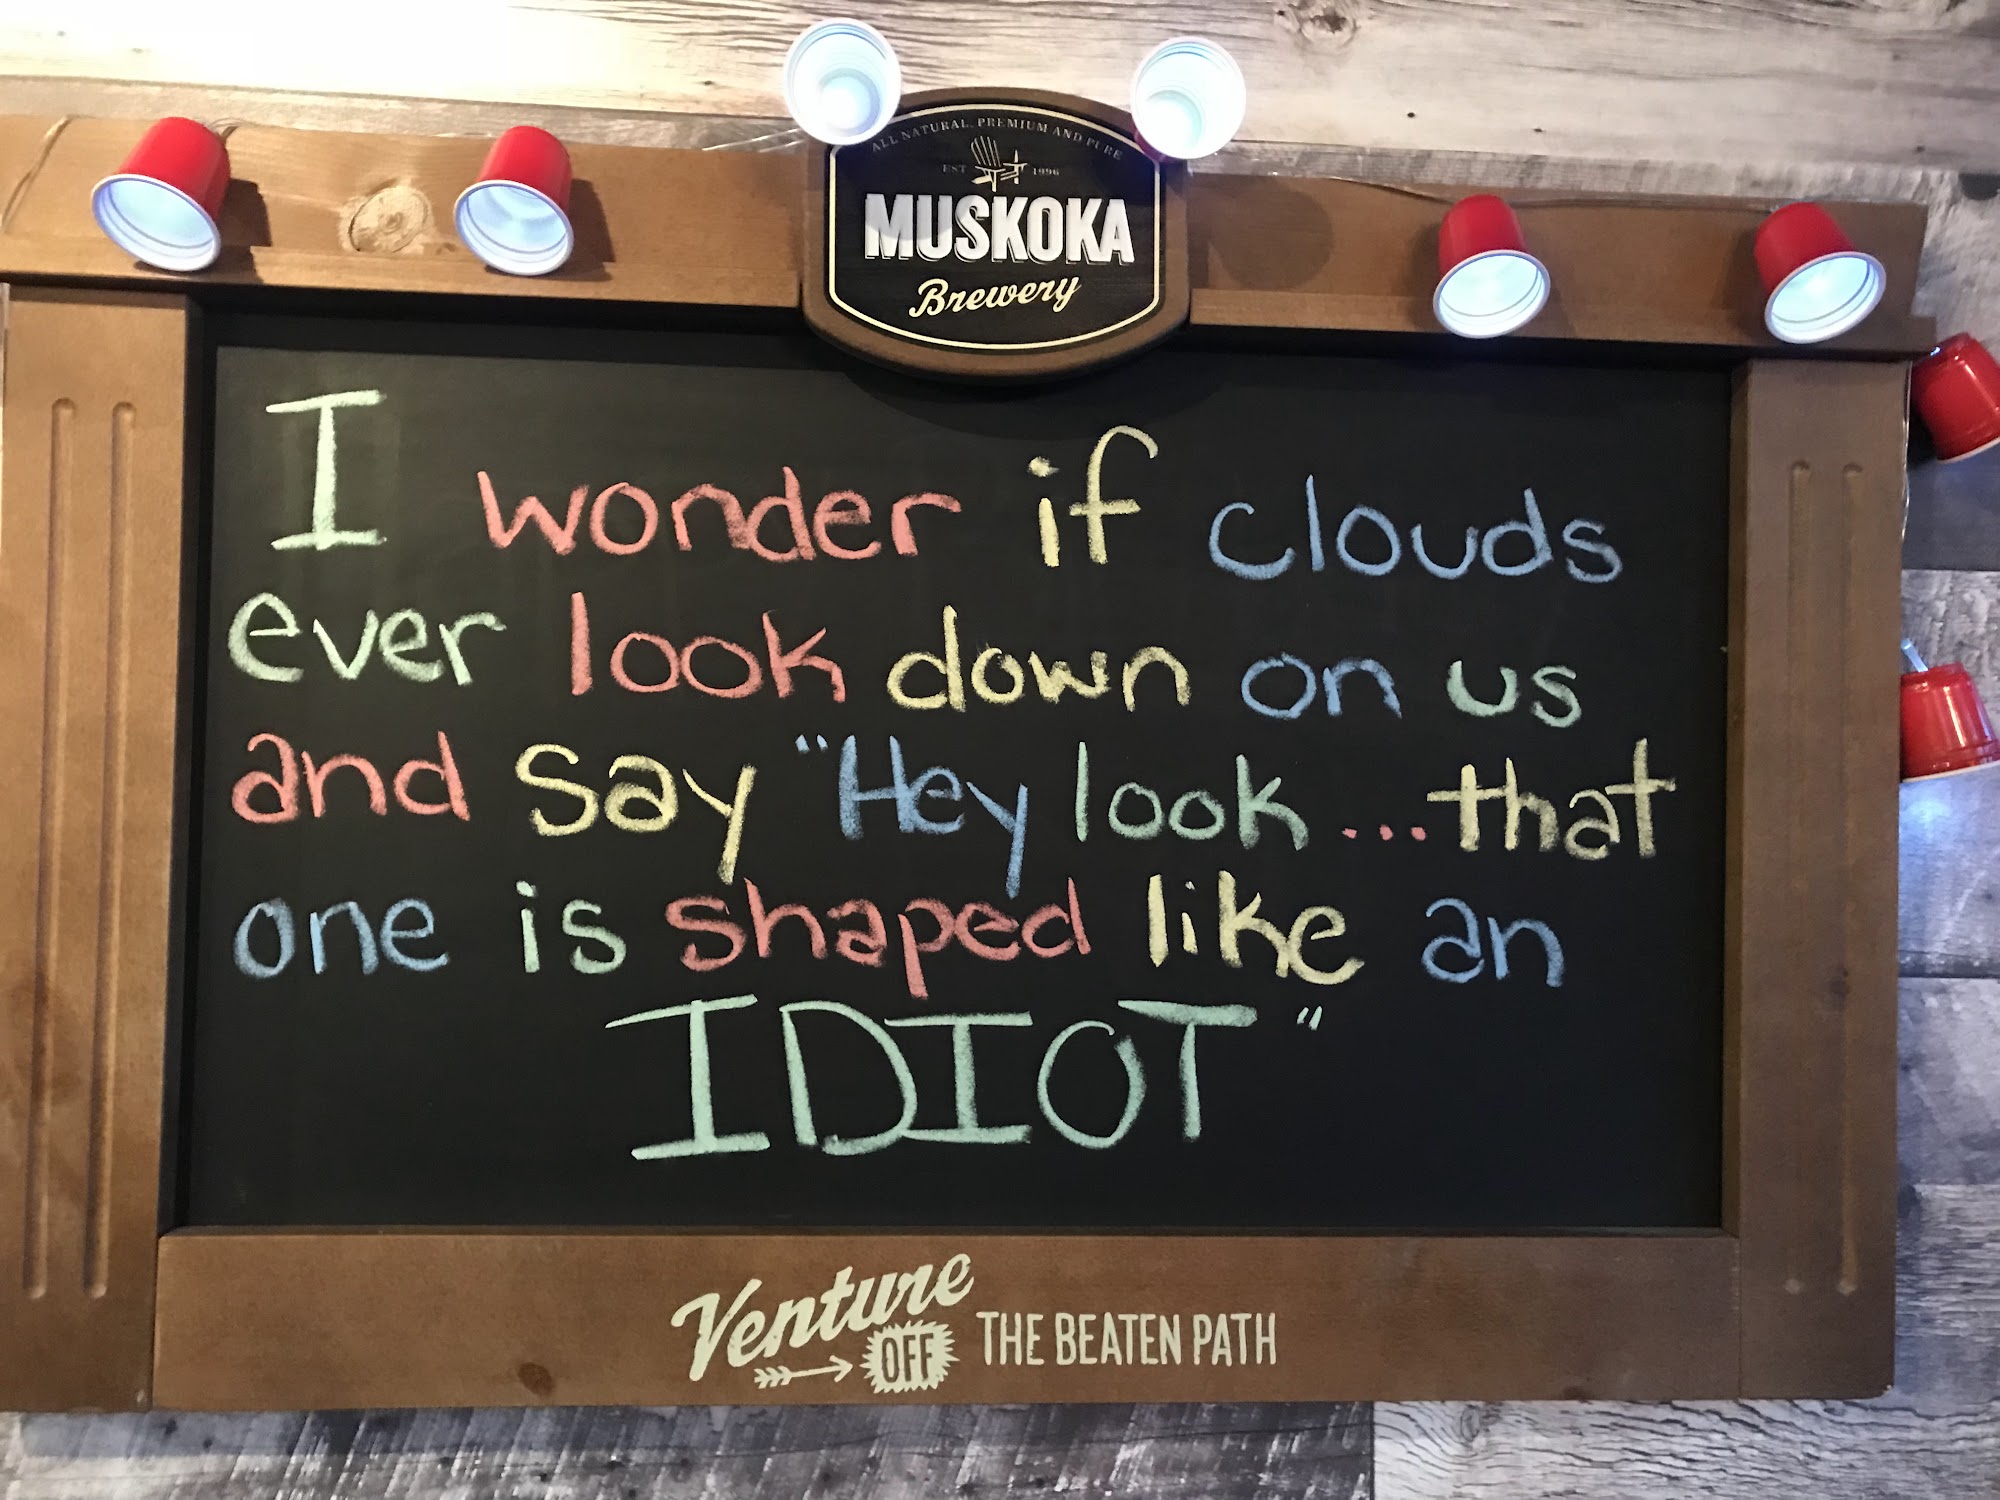 ALL NATURAL, PREMIUM AND PURE
EST 1996
MUSKOKA
Brewery
I wonder if clouds
ever look down on us
and say "Hey look...that
one is shaped like an
IDIOT"
Venture OFF THE BEATEN PATH